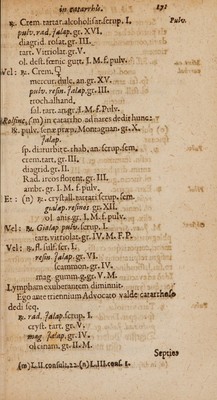 in catarrhis. 271
℞. Crem. tartar. alcoholisat. scrup. I. Pulv.
pulv. rad. jalap. gr. XVI.
diagrid. rosat. gr. III.
tart. Vitriolat. gr. V.
ol. dest. fœnic. gutt. I. M. f. pulv.
Vel: ℞. Crem.
mercur. gr. XV.
pulv. resin. jalap. gr. III.
troch. alhand.
sal. tart. ang. I. M. f. Pulv.
(m) in catarrho. ad nates dedit hunc:
℞. pulv. senæ præp. Montagnan. gr. X.
jalap.
sp. diaturbit. c. rhab. an. scrup. sem.
crem. tart. gr. III.
diagrid. gr. II.
Rad. ireos florent. gr. III.
ambr. gr. I. M. f. pulv.
Et: (n) ℞. crystall. tartari scrup. sem.
resinos gr. XII.
ol. anis. gr. I. M. f. pulv.
Vel: ℞. Gialap pulv. scrup. I.
tart. vitriolat. gr. IV. M. F. P.
Vel: ℞. fl. sulf. ser. I.
resin. jalap. gr. VI.
scammon. gr. IV.
mag. gumm. g. gr. V. M.
Lympham exuberantem diminuit.
Ego autem triennium Advocato valde catarrhoso
dedi seq.
℞. rad. jalap. scrup. I.
cryst. tart. gr. V.
mag. jalap. gr. IV.
ol. cinam. gr. II. M.
Septies
(m) L. II. consult. 12. (n) L. III. cons. I.